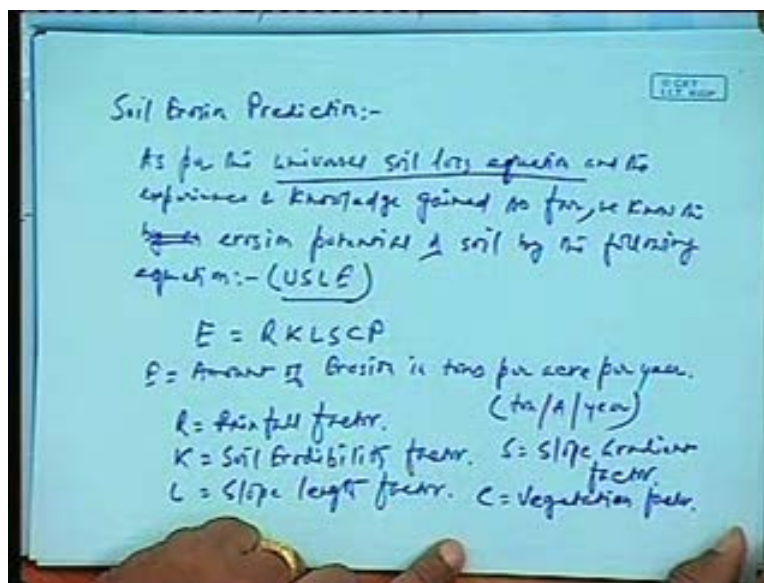 © CET
I.I.T. KGP
Soil Erosion Prediction:-
As per the universal soil loss equation and the
experience & knowledge gained so far, we know the
erosion potential of soil by the following
equation:- (USLE)
E = RKLSCP
E = Amount of Erosion in tons per acre per year.
(ton/A/year)
R = Rainfall factor.
K = Soil Erodibility factor. S = Slope Gradient
factor.
L = Slope length factor. C = Vegetation factor.